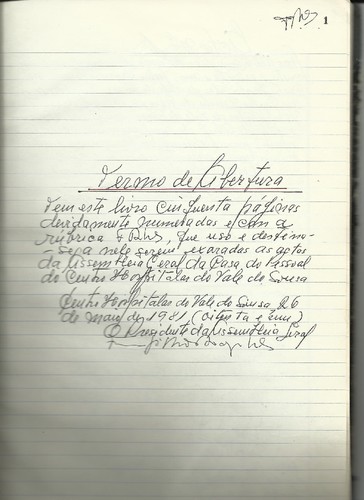 1
Termo de Abertura
Tem este livro cinquenta páginas
devidamente numeradas e com a
rúbrica que uso e destina-
se a nele serem exaradas as actas
da Assembleia Geral da Casa do Pessoal
do Centro Hospitalar do Vale do Sousa
Centro Hospitalar do Vale do Sousa, 26
de maio de 1981 (oitenta e um)
O Presidente da Assembleia Geral